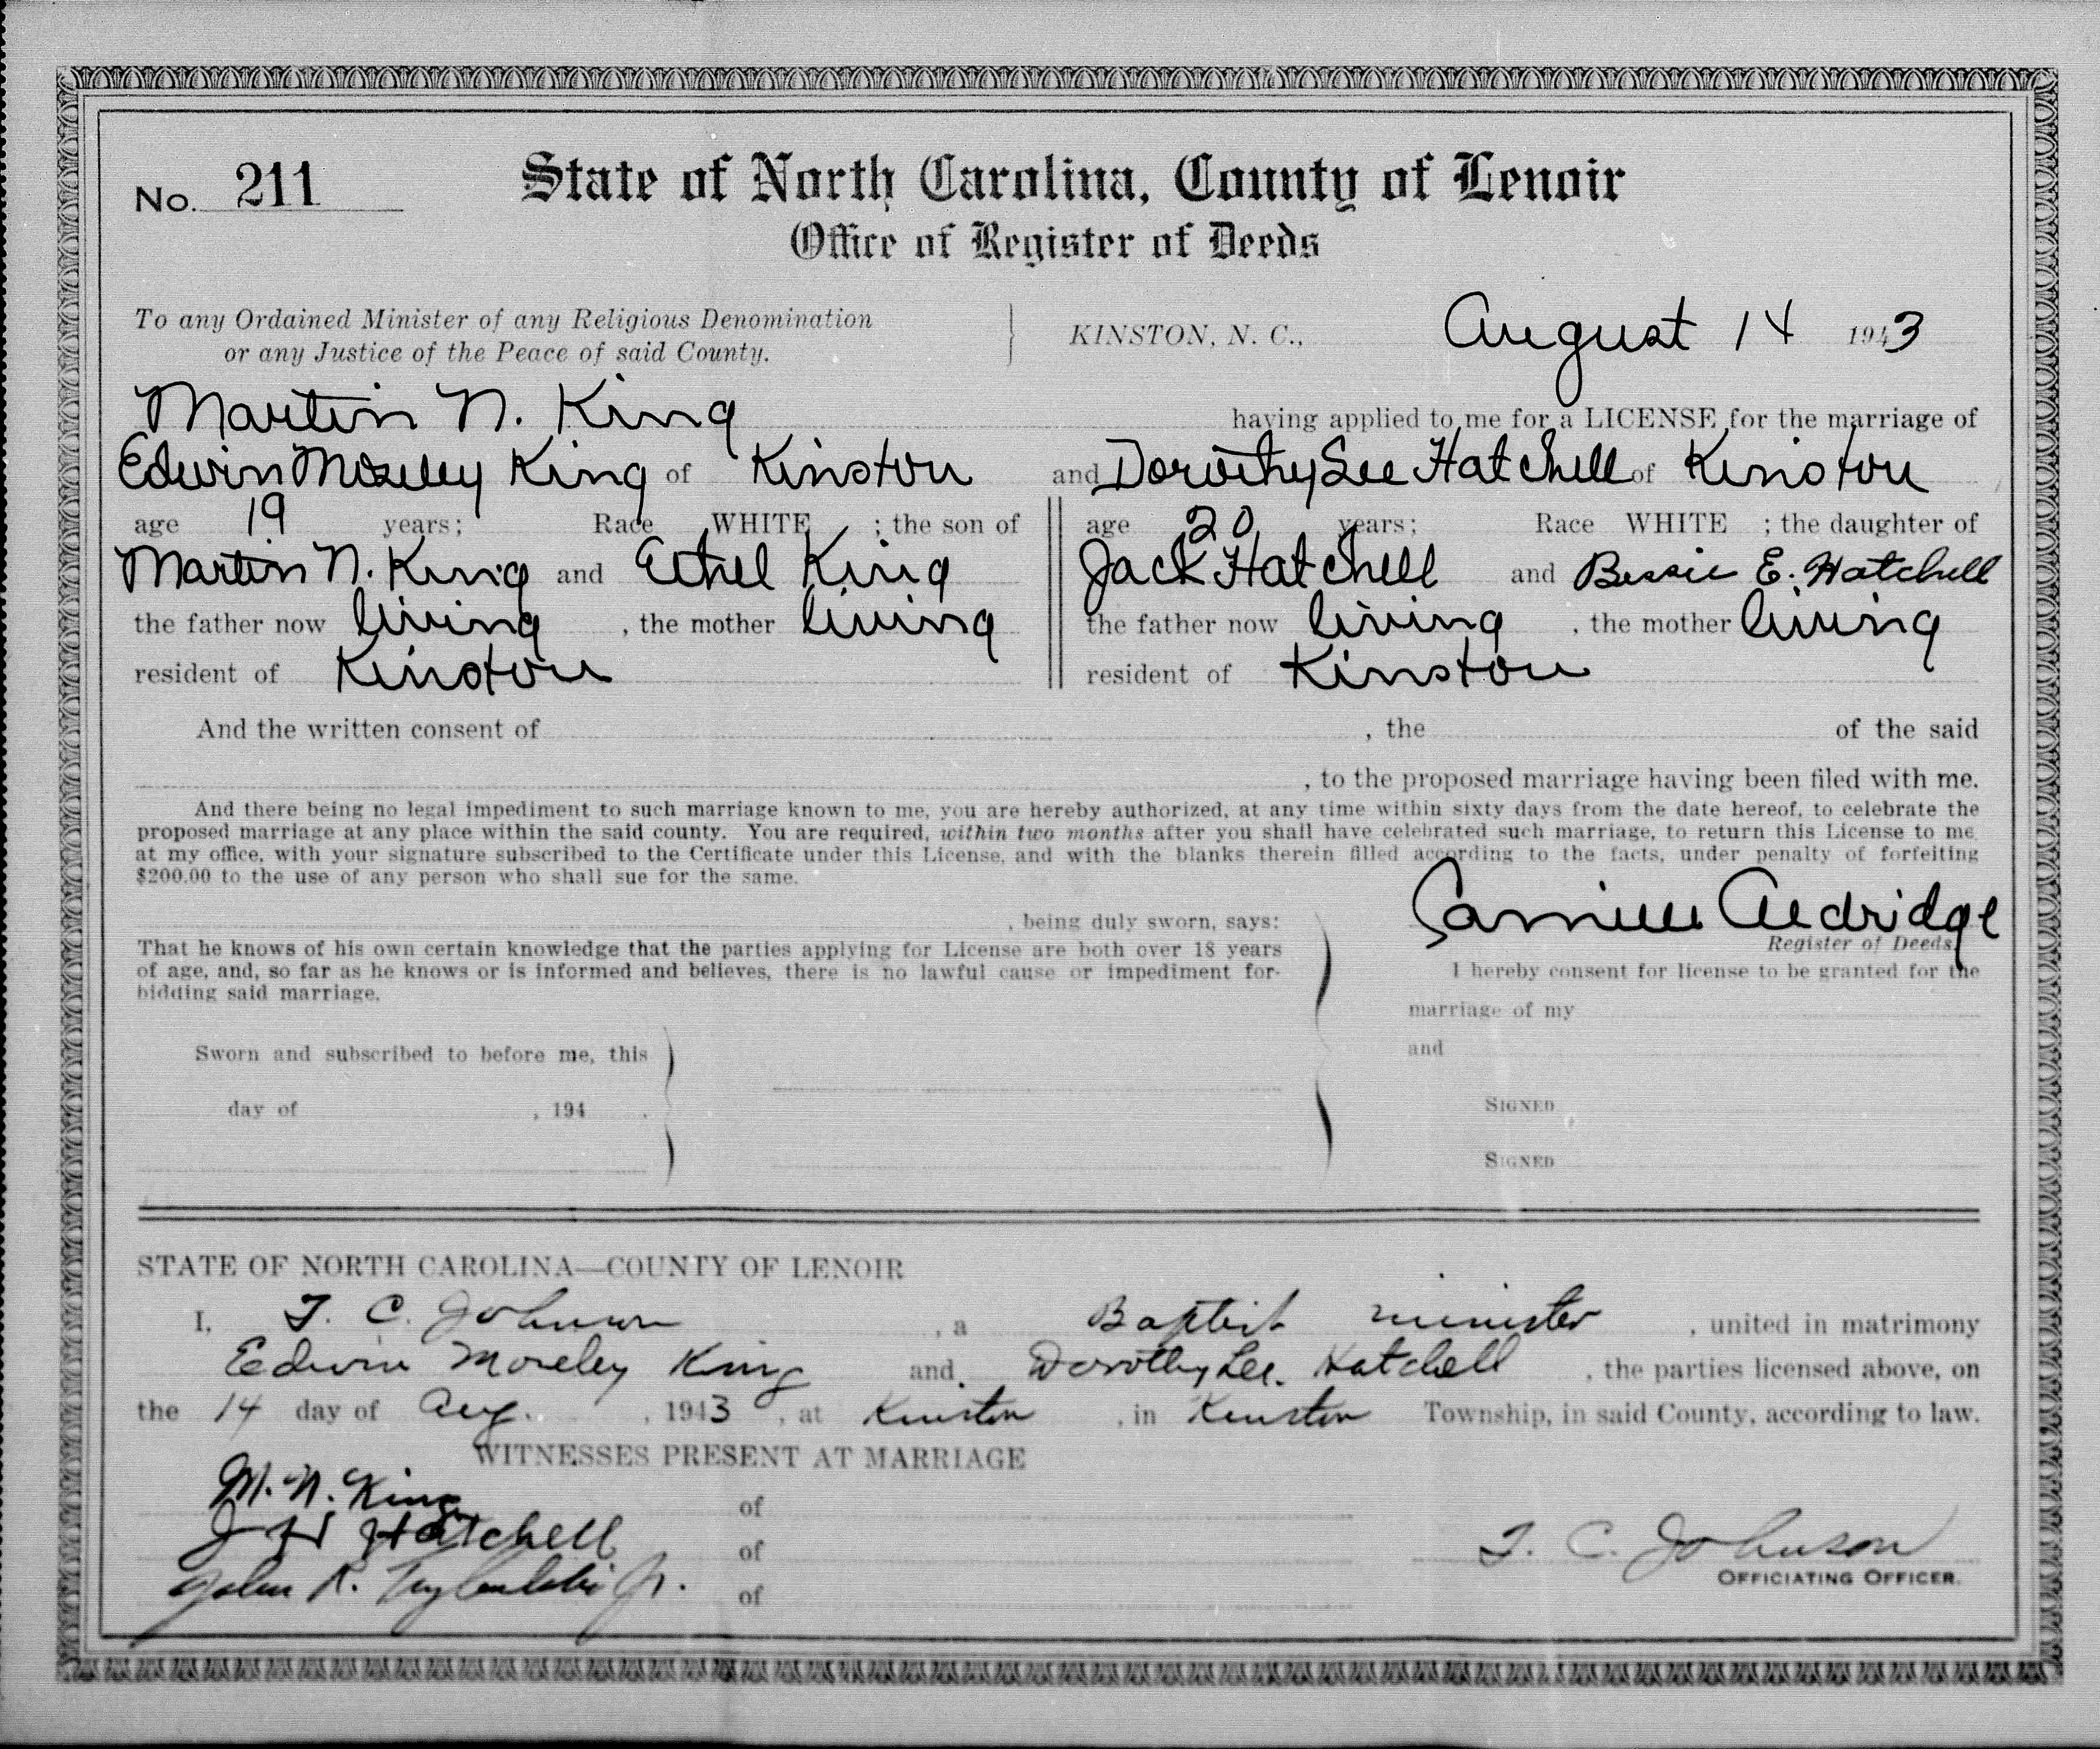 No. 211 State of North Carolina, County of Lenoir
Office of Register of Deeds
To any Ordained Minister of any Religious Denomination
or any Justice of the Peace of said County.
KINSTON, N. C., August 14 1943
Martin N. King having applied to me for a LICENSE for the marriage of
Edwin Moseley King of Kinston and Dorothy Lee Hatchell of Kinston
age 19 years; Race WHITE ; the son of
Martin N. King and Ethel King
the father now living , the mother living
resident of Kinston
age 20 years; Race WHITE ; the daughter of
Jack Hatchell and Bessie E. Hatchell
the father now living , the mother living
resident of Kinston
And the written consent of , the of the said
, to the proposed marriage having been filed with me.
And there being no legal impediment to such marriage known to me, you are hereby authorized, at any time within sixty days from the date hereof, to celebrate the
proposed marriage at any place within the said county. You are required, within two months after you shall have celebrated such marriage, to return this License to me
at my office, with your signature subscribed to the Certificate under this License, and with the blanks therein filled according to the facts, under penalty of forfeiting
$200.00 to the use of any person who shall sue for the same.
Camille Aldridge
Register of Deeds.
, being duly sworn, says:
That he knows of his own certain knowledge that the parties applying for License are both over 18 years
of age, and, so far as he knows or is informed and believes, there is no lawful cause or impediment for-
bidding said marriage.
Sworn and subscribed to before me, this
day of , 194 .
I hereby consent for license to be granted for the
marriage of my
and
SIGNED
SIGNED
STATE OF NORTH CAROLINA—COUNTY OF LENOIR
I, T. C. Johnson , a Baptist minister , united in matrimony
Edwin Moseley King and Dorothy Lee Hatchell , the parties licensed above, on
the 14 day of Aug. , 1943 , at Kinston , in Kinston Township, in said County, according to law.
WITNESSES PRESENT AT MARRIAGE
M. N. King of
J H Hatchell of
John R. Jr. of
T. C. Johnson
OFFICIATING OFFICER.